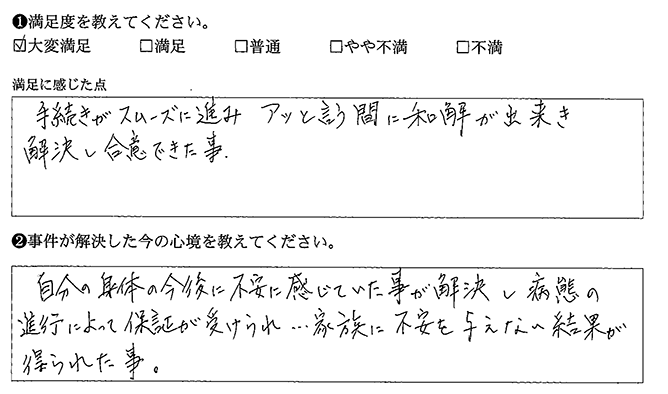 ❶満足度を教えてください。
☑大変満足 □満足 □普通 □やや不満 □不満
満足に感じた点
手続きがスムーズに進み アッと言う間に和解が出来き
解決し合意できた事.
❷事件が解決した今の心境を教えてください。
自分の身体の今後に不安に感じていた事が解決し病態の
進行によって保証が受けられ…家族に不安を与えない結果が
得られた事。